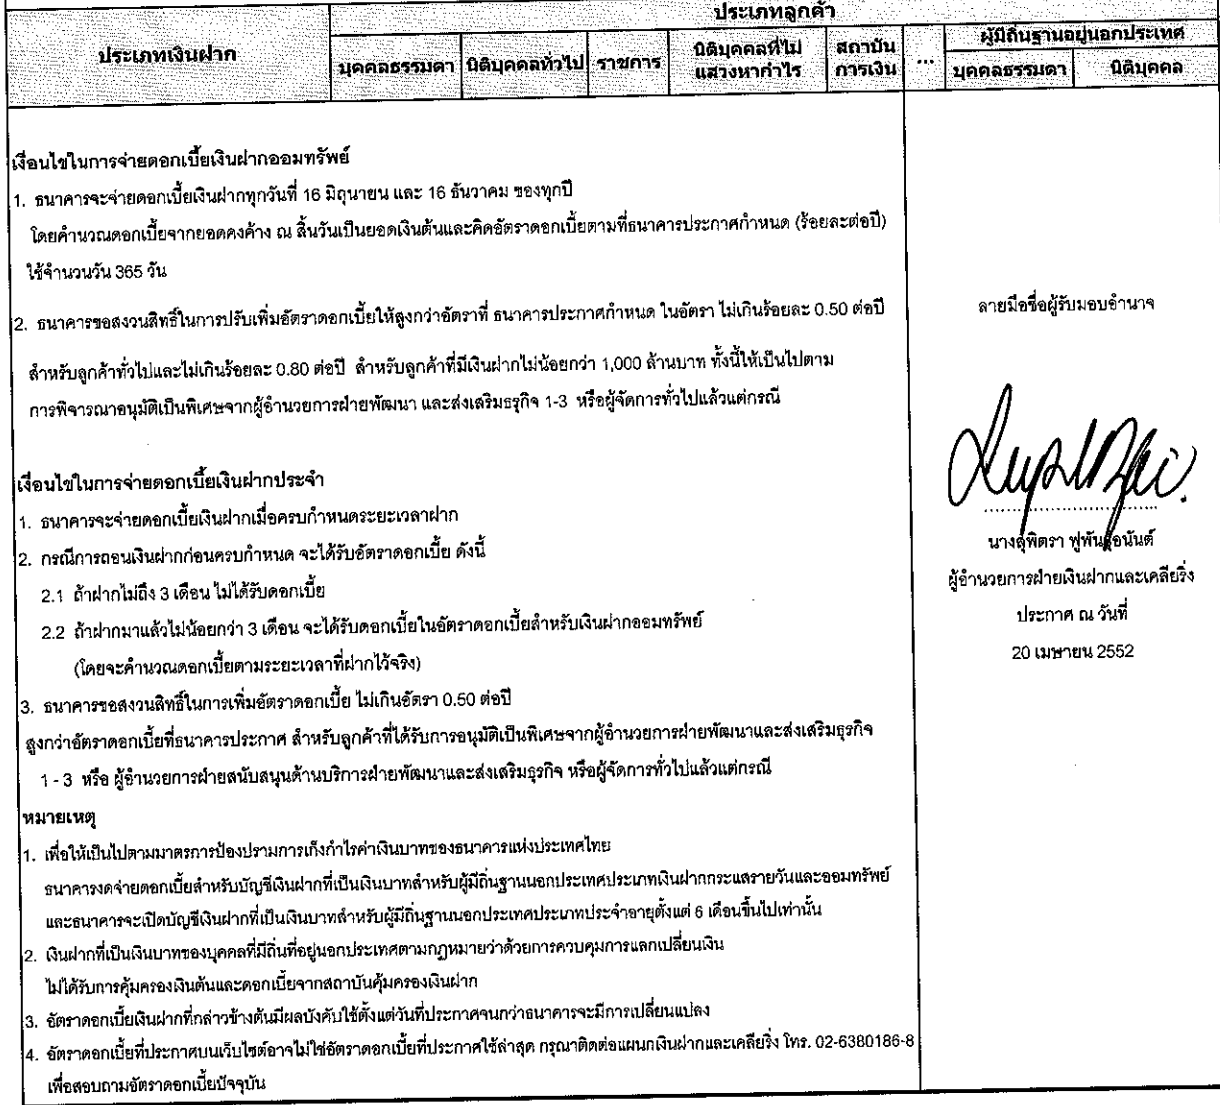 ประเภทลูกค้า
ประเภทเงินฝาก
บุคคลธรรมดา
นิติบุคคลทั่วไป
ราชการ
นิติบุคคลที่ไม่
แสวงหากำไร
สถาบัน
การเงิน
...
ผู้มีถิ่นฐานอยู่นอกประเทศ
บุคคลธรรมดา
นิติบุคคล
เงื่อนไขในการจ่ายดอกเบี้ยเงินฝากออมทรัพย์
1. ธนาคารจะจ่ายดอกเบี้ยเงินฝากทุกวันที่ 16 มิถุนายน และ 16 ธันวาคม ของทุกปี
โดยคำนวณดอกเบี้ยจากยอดคงค้าง ณ สิ้นวันเป็นยอดเงินต้นและคิดอัตราดอกเบี้ยตามที่ธนาคารประกาศกำหนด (ร้อยละต่อปี)
ใช้จำนวนวัน 365 วัน
2. ธนาคารขอสงวนสิทธิ์ในการปรับเพิ่มอัตราดอกเบี้ยให้สูงกว่าอัตราที่ ธนาคารประกาศกำหนด ในอัตรา ไม่เกินร้อยละ 0.50 ต่อปี
สำหรับลูกค้าทั่วไปและไม่เกินร้อยละ 0.80 ต่อปี สำหรับลูกค้าที่มีเงินฝากไม่น้อยกว่า 1,000 ล้านบาท ทั้งนี้ให้เป็นไปตาม
การพิจารณาอนุมัติเป็นพิเศษจากผู้อำนวยการฝ่ายพัฒนา และส่งเสริมธุรกิจ 1-3 หรือผู้จัดการทั่วไปแล้วแต่กรณี
เงื่อนไขในการจ่ายดอกเบี้ยเงินฝากประจำ
1. ธนาคารจะจ่ายดอกเบี้ยเงินฝากเมื่อครบกำหนดระยะเวลาฝาก
2. กรณีการถอนเงินฝากก่อนครบกำหนด จะได้รับอัตราดอกเบี้ย ดังนี้
2.1 ถ้าฝากไม่ถึง 3 เดือน ไม่ได้รับดอกเบี้ย
2.2 ถ้าฝากมาแล้วไม่น้อยกว่า 3 เดือน จะได้รับดอกเบี้ยในอัตราดอกเบี้ยสำหรับเงินฝากออมทรัพย์
(โดยจะคำนวณดอกเบี้ยตามระยะเวลาที่ฝากไว้จริง)
3. ธนาคารขอสงวนสิทธิ์ในการเพิ่มอัตราดอกเบี้ย ไม่เกินอัตรา 0.50 ต่อปี
สูงกว่าอัตราดอกเบี้ยที่ธนาคารประกาศ สำหรับลูกค้าที่ได้รับการอนุมัติเป็นพิเศษจากผู้อำนวยการฝ่ายพัฒนาและส่งเสริมธุรกิจ
1 - 3 หรือ ผู้อำนวยการฝ่ายสนับสนุนด้านบริการฝ่ายพัฒนาและส่งเสริมธุรกิจ หรือผู้จัดการทั่วไปแล้วแต่กรณี
หมายเหตุ
1. เพื่อให้เป็นไปตามมาตรการป้องปรามการเก็งกำไรค่าเงินบาทของธนาคารแห่งประเทศไทย
ธนาคารงดจ่ายดอกเบี้ยสำหรับบัญชีเงินฝากที่เป็นเงินบาทสำหรับผู้มีถิ่นฐานนอกประเทศประเภทเงินฝากกระแสรายวันและออมทรัพย์
และธนาคารจะเปิดบัญชีเงินฝากที่เป็นเงินบาทสำหรับผู้มีถิ่นฐานนอกประเทศประเภทประจำอายุตั้งแต่ 6 เดือนขึ้นไปเท่านั้น
2. เงินฝากที่เป็นเงินบาทของบุคคลที่มีถิ่นที่อยู่นอกประเทศตามกฎหมายว่าด้วยการควบคุมการแลกเปลี่ยนเงิน
ไม่ได้รับการคุ้มครองเงินต้นและดอกเบี้ยจากสถาบันคุ้มครองเงินฝาก
3. อัตราดอกเบี้ยเงินฝากที่กล่าวข้างต้นมีผลบังคับใช้ตั้งแต่วันที่ประกาศจนกว่าธนาคารจะมีการเปลี่ยนแปลง
4. อัตราดอกเบี้ยที่ประกาศบนเว็บไซต์อาจไม่ใช่อัตราดอกเบี้ยที่ประกาศใช้ล่าสุด กรุณาติดต่อแผนกเงินฝากและเคลียริ่ง โทร. 02-6380186-8
เพื่อสอบถามอัตราดอกเบี้ยปัจจุบัน
ลายมือชื่อผู้รับมอบอำนาจ
นางสุพิตรา ฟูพันธ์อนันต์
ผู้อำนวยการฝ่ายเงินฝากและเคลียริ่ง
ประกาศ ณ วันที่
20 เมษายน 2552